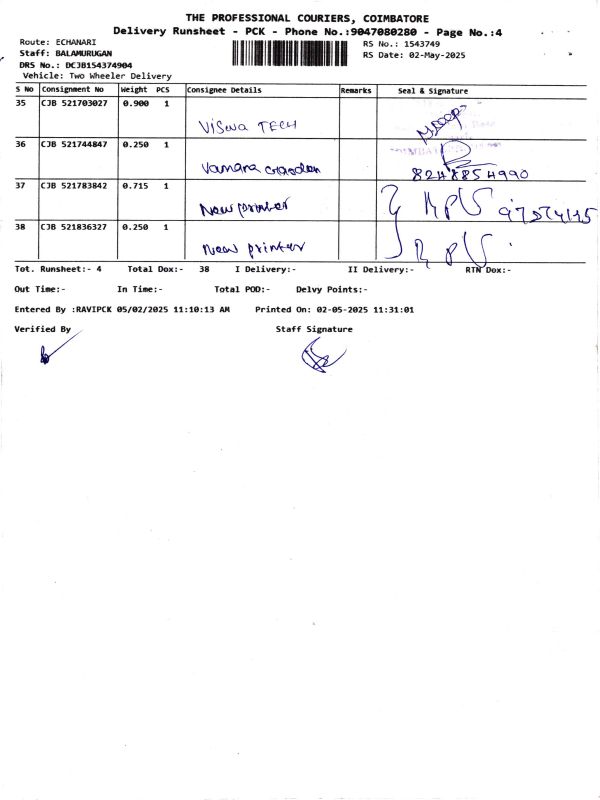 THE PROFESSIONAL COURIERS, COIMBATORE
Delivery Runsheet - PCK - Phone No.:9047080280 - Page No.:4
Route: ECHANARI
RS No.: 1543749
Staff: BALAMURUGAN
RS Date: 02-May-2025
DRS No.: DCJB154374904
Vehicle: Two Wheeler Delivery
S No Consignment No Weight PCS Consignee Details Remarks Seal & Signature
35 CJB 521703027 0.900 1 Viswa TECH
36 CJB 521744847 0.250 1 8248854990
37 CJB 521783842 0.715 1 New printer
38 CJB 521836327 0.250 1 New printer
Tot. Runsheet:- 4 Total Dox:- 38 I Delivery:- II Delivery:- RTN Dox:-
Out Time:- In Time:- Total POD:- Delvy Points:-
Entered By :RAVIPCK 05/02/2025 11:10:13 AM Printed On: 02-05-2025 11:31:01
Verified By Staff Signature